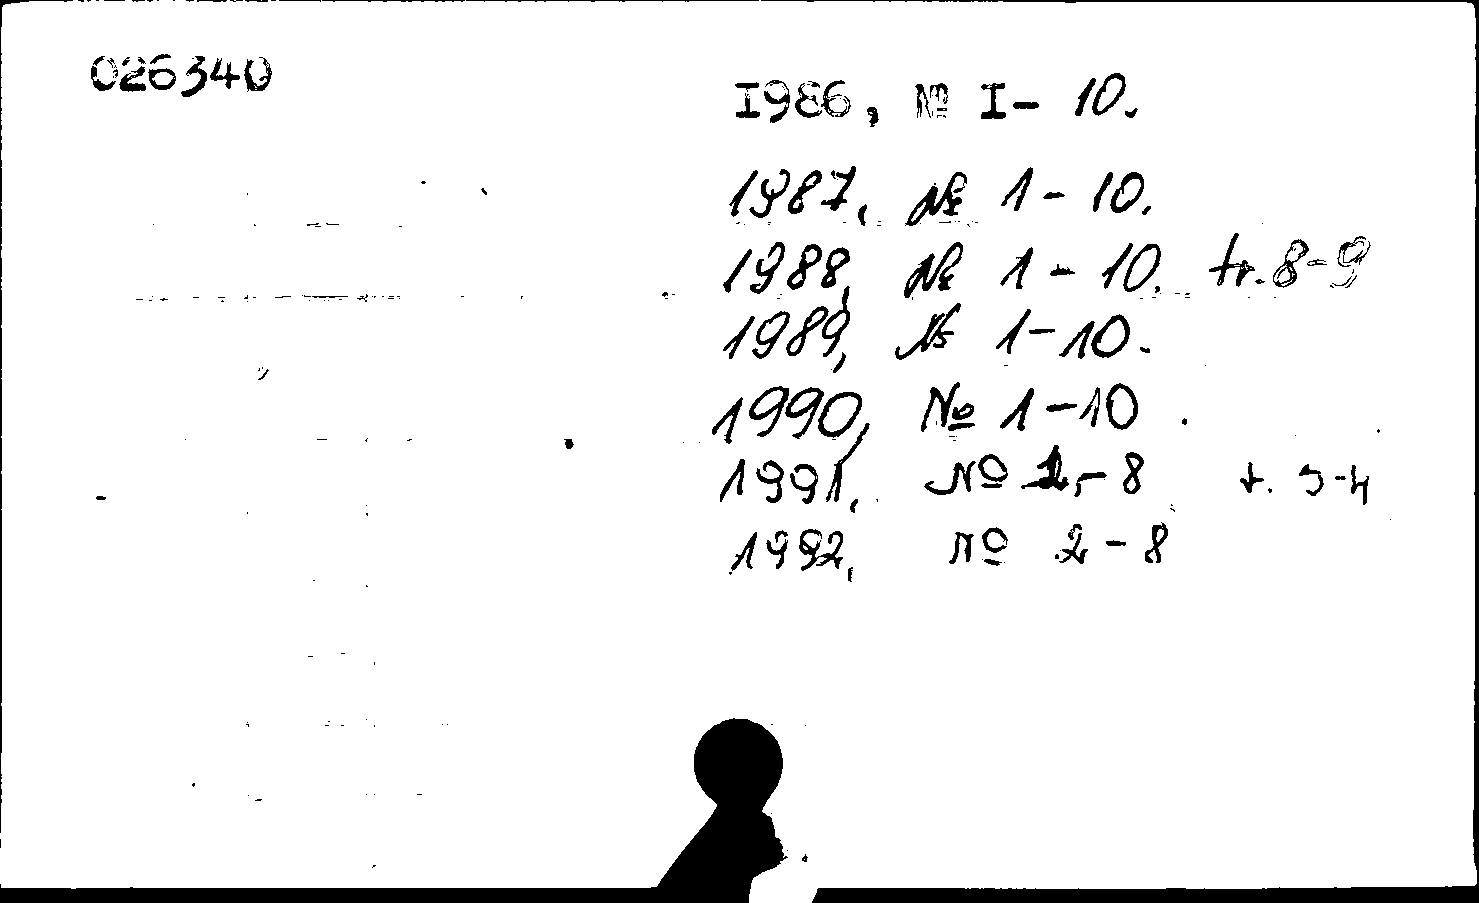 026340
I986, № I- 10.
1987, № 1 - 10.
1988, № 1 - 10. tr. 8-9
1989, № 1-10.
1990, № 1-10.
1991, № 1,-8 t. 3-4
1992, № 2-8